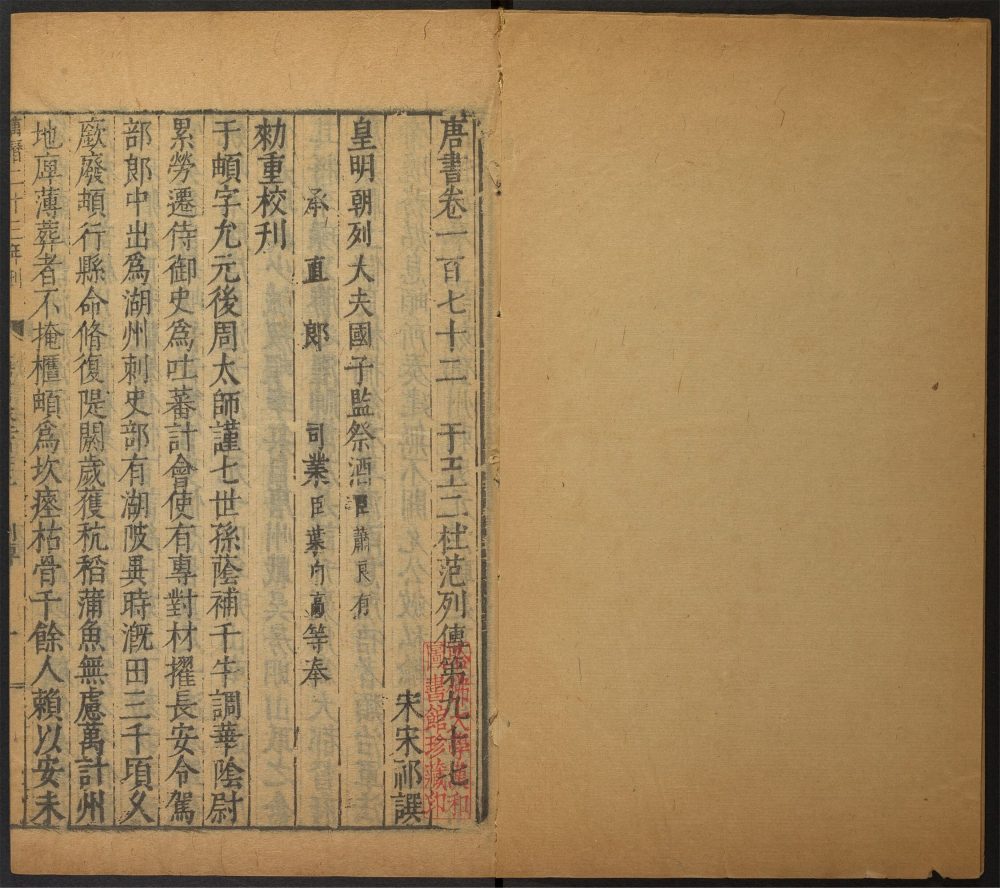 唐書卷一百七十二　于王二杜范列傳第九十七
宋宋祁譔
皇明朝列大夫國子監祭酒臣蕭良有
承直郎司業臣葉向高等奉
勑重校刊
于頔字允元後周太師謹七世孫蔭補千牛調華陰尉
累勞遷侍御史爲吐蕃計會使有專對材擢長安令駕
部郎中出爲湖州刺史部有湖陂異時溉田三千頃久
廞廢頔行縣命脩復隄閼歲獲秔稻蒲魚無慮萬計州
地庳薄葬者不掩櫃頔爲坎瘞枯骨千餘人賴以安未
萬曆二十三年刊
哈佛大學漢和
圖書館珍藏印